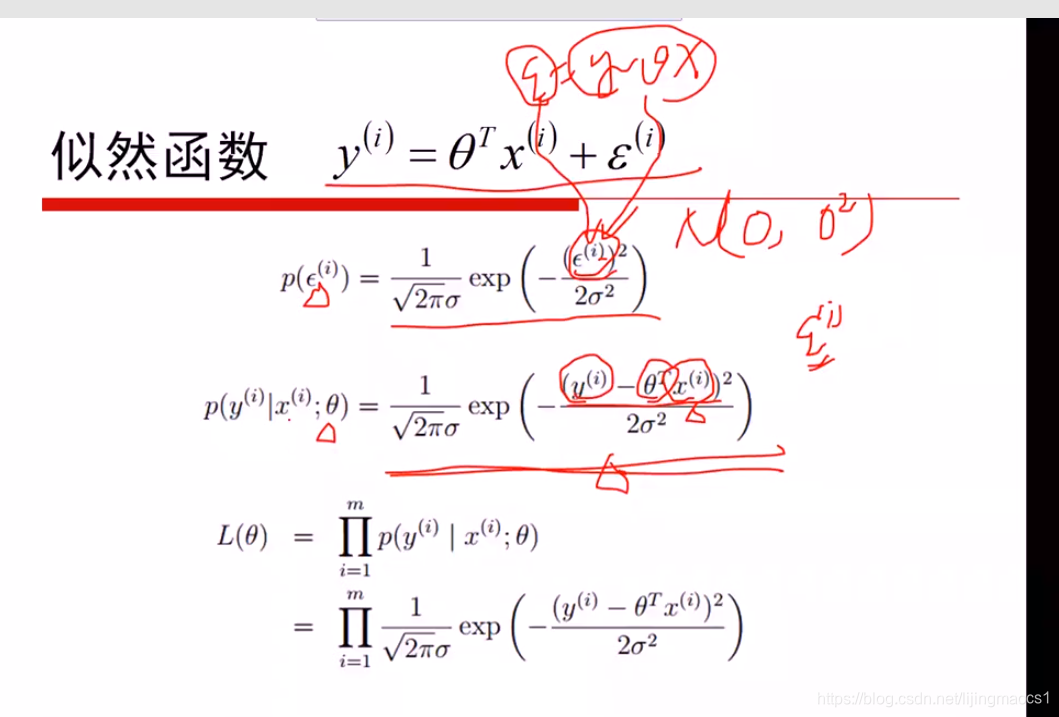 ε = y - θX
似然函数 y^(i) = θ^T x^(i) + ε^(i)
N(0, σ²)
p(ϵ^(i)) = 1/(√(2π)σ) exp(−(ϵ^(i))²/(2σ²))
ε^(i)
p(y^(i)|x^(i); θ) = 1/(√(2π)σ) exp(−(y^(i) − θ^T x^(i))²/(2σ²))
L(θ) = ∏_{i=1}^{m} p(y^(i) | x^(i); θ)
= ∏_{i=1}^{m} 1/(√(2π)σ) exp(−(y^(i) − θ^T x^(i))²/(2σ²))
https://blog.csdn.net/lijingmaocs1